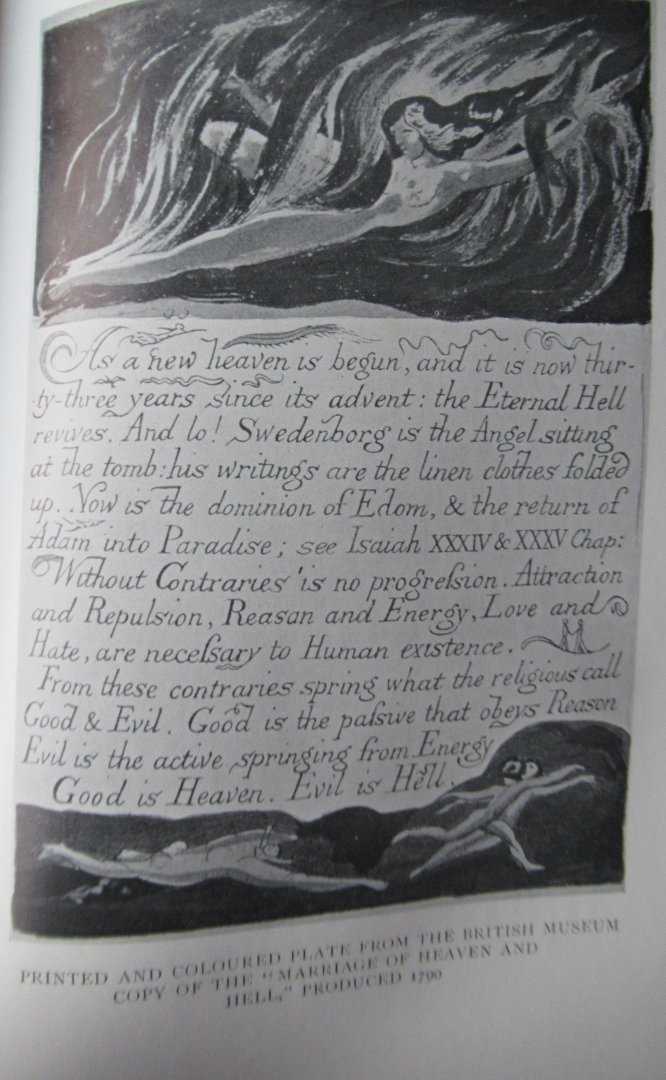 As a new heaven is begun, and it is now thir-
-ty-three years since its advent: the Eternal Hell
revives. And lo! Swedenborg is the Angel sitting
at the tomb: his writings are the linen clothes folded
up. Now is the dominion of Edom, & the return of
Adam into Paradise; see Isaiah XXXIV & XXXV Chap:
Without Contraries is no progreſsion. Attraction
and Repulsion, Reason and Energy, Love and
Hate, are neceſsary to Human existence.
From these contraries spring what the religious call
Good & Evil. Good is the paſsive that obeys Reason
Evil is the active springing from Energy
Good is Heaven. Evil is Hell.
PRINTED AND COLOURED PLATE FROM THE BRITISH MUSEUM
COPY OF THE "MARRIAGE OF HEAVEN AND
HELL," PRODUCED 1790